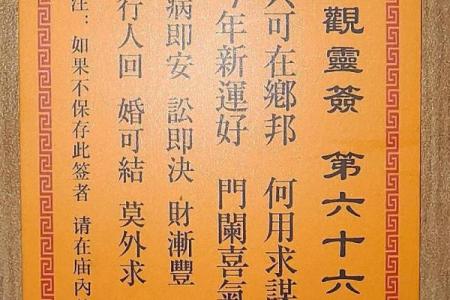 觀靈簽 第六十六
可在鄉邦 何用求謀
年新運好 門闌喜氣
病即安 訟即決 財漸豐
行人回 婚可結 莫外求
注：如果不保存此签者 请在庙内